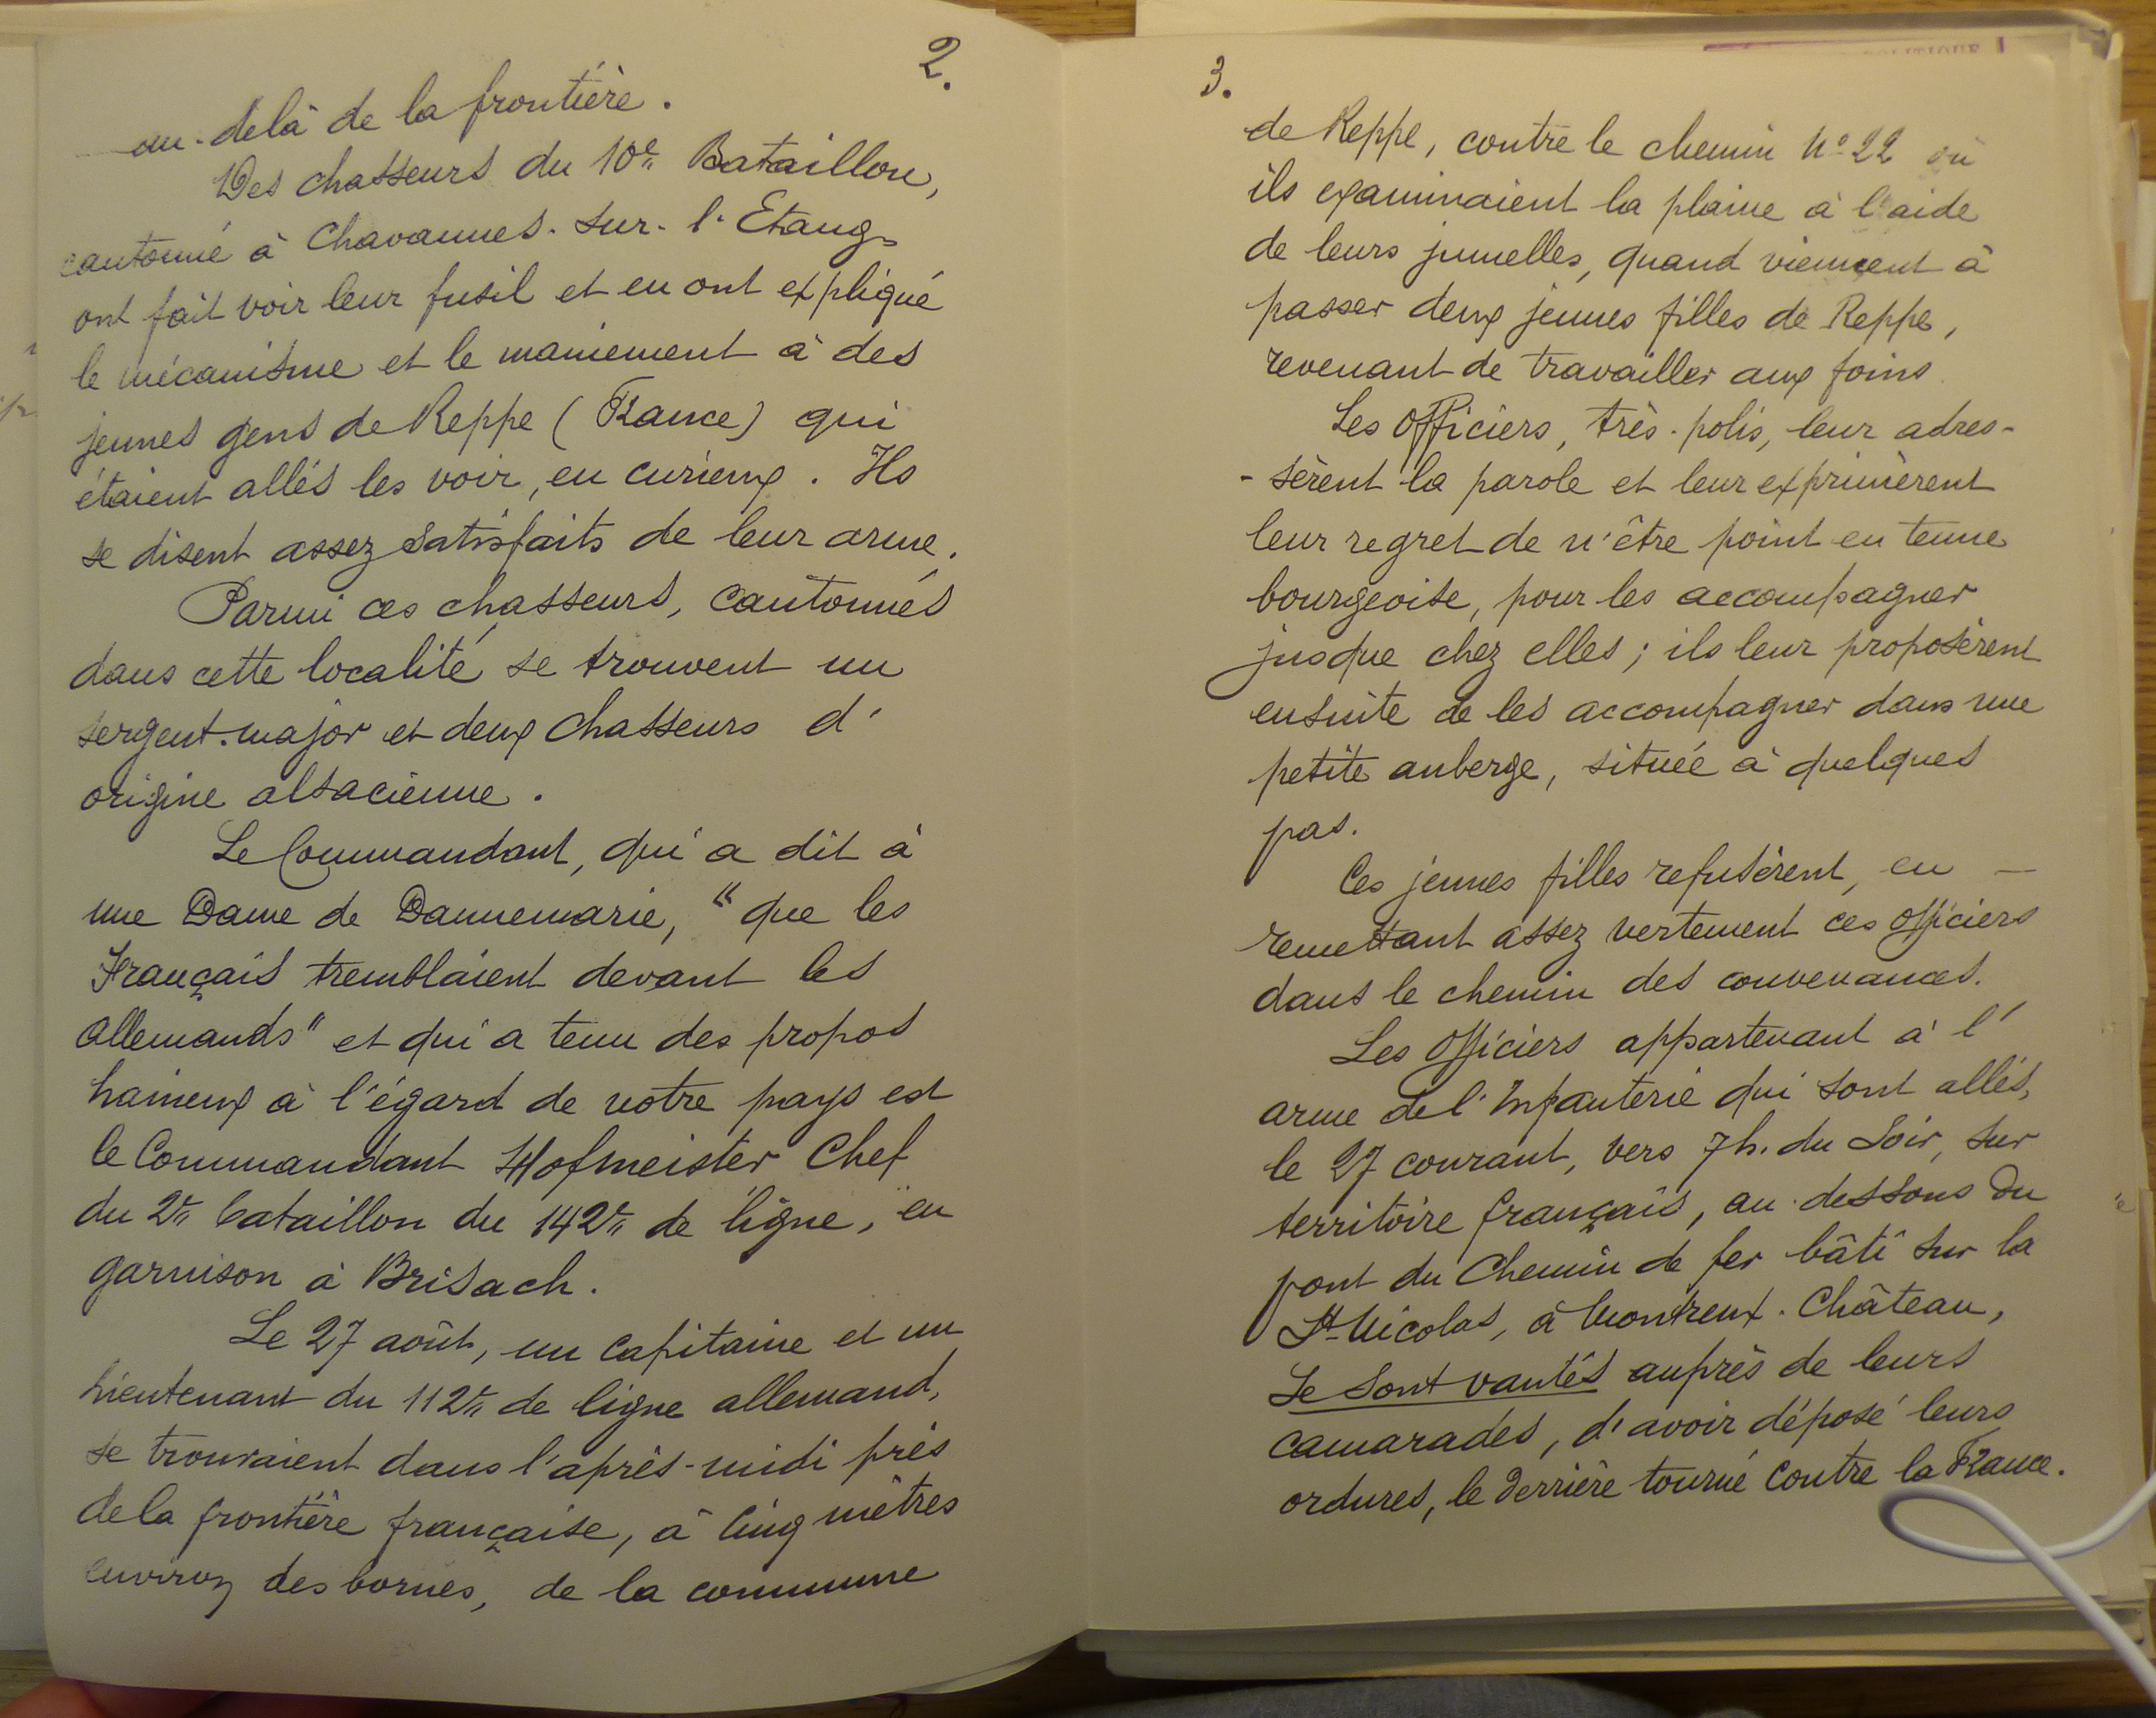 2.
au-delà de la frontière.
Des chasseurs du 10e Bataillon,
cantonné à Chavannes-sur-l'Etang
ont fait voir leur fusil et en ont expliqué
le mécanisme et le maniement à des
jeunes gens de Reppe (France) qui
étaient allés les voir, en curieux. Ils
se disent assez satisfaits de leur arme.
Parmi ces chasseurs, cantonnés
dans cette localité se trouvent un
sergent-major et deux chasseurs d'
origine alsacienne.
Le Commandant, qui a dit à
une Dame de Dannemarie, "que les
Français tremblaient devant les
allemands" et qui a tenu des propos
haineux à l'égard de notre pays est
le Commandant Hofmeister Chef
du 2e bataillon du 142e de ligne, en
garnison à Brisach.
Le 27 août, un capitaine et un
lieutenant du 112e de ligne allemand,
se trouvaient dans l'après-midi près
de la frontière française, à cinq mètres
environ des bornes, de la commune
3.
de Reppe, contre le chemin No 22 où
ils examinaient la plaine à l'aide
de leurs jumelles, quand viennent à
passer deux jeunes filles de Reppe,
revenant de travailler aux foins
Les officiers, très-polis, leur adres-
-sèrent la parole et leur exprimèrent
leur regret de n'être point en tenue
bourgeoise, pour les accompagner
jusque chez elles; ils leur proposèrent
ensuite de les accompagner dans une
petite auberge, située à quelques
pas.
Ces jeunes filles refusèrent, en —
remettant assez vertement ces officiers
dans le chemin des convenances.
Les officiers appartenant à l'
arme de l'Infanterie qui sont allés,
le 27 courant, vers 7h. du soir, sur
territoire français, au-dessous du
pont du Chemin de fer bâti sur la
St-Nicolas, à Montreux-Château,
se sont vantés auprès de leurs
camarades, d'avoir déposé leurs
ordures, le derrière tourné contre la France.